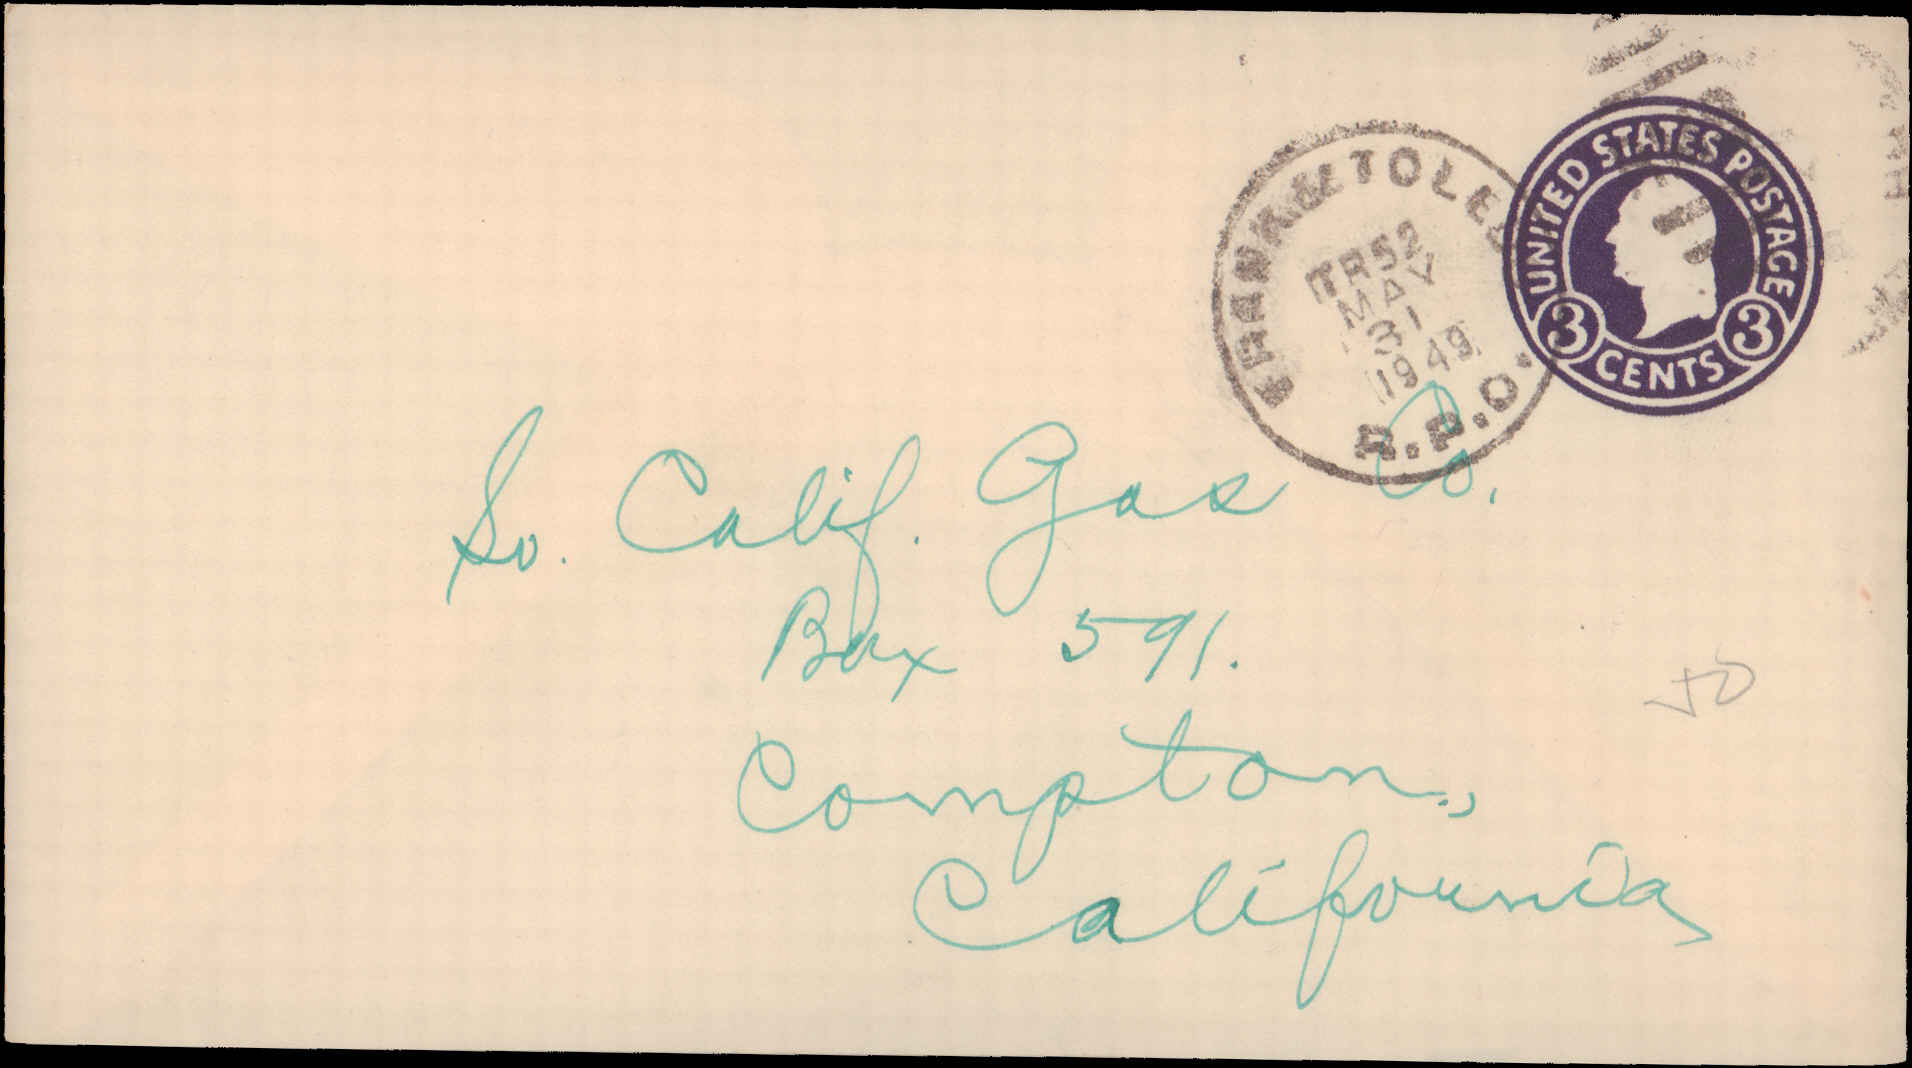 FRANK. & TOLEDO
TR 52
MAY
31
1949
R.P.O.
UNITED STATES POSTAGE
3 CENTS 3
So. Calif. Gas Co.
Box 591.
Compton,
California
50